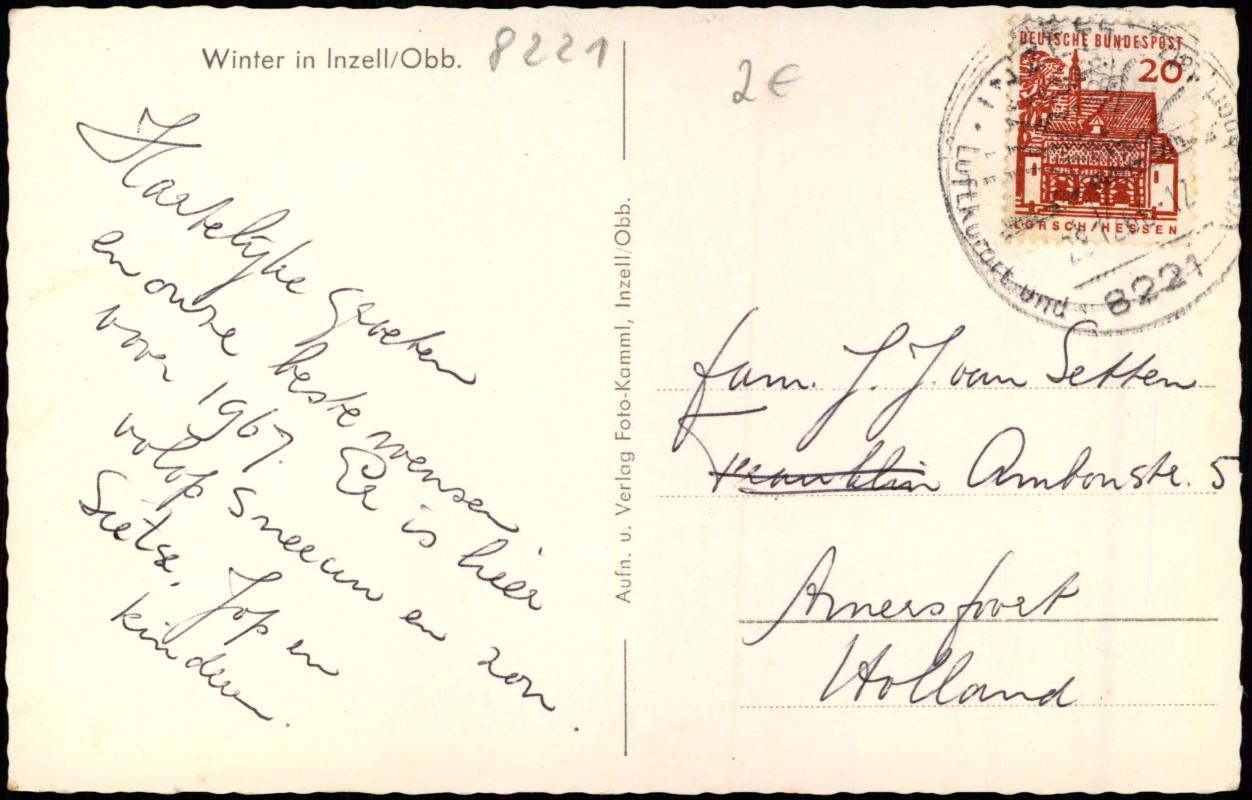 Winter in Inzell/Obb.
8221
2€
Hartelijke groeten
en onze beste wensen
voor 1967. Er is hier
volop sneeuw en zon.
Sietse, Jop en
kinderen.
Aufn. u. Verlag Foto-Kamml, Inzell/Obb.
DEUTSCHE BUNDESPOST
20
LORSCH/HESSEN
INZELL
Luftkurort und
8221
fam. J. J. van Setten
Franklin Ambonstr. 5
Amersfoort
Holland